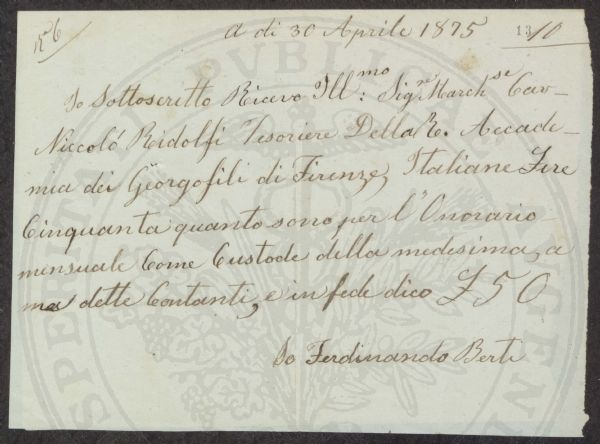 N.6
A di 30 Aprile 1875
13/10
Io Sottoscritto Ricevo Ill:mo Sigre Marchse Cav-
Niccoló Ridolfi Tesoriere Della R. Accade-
mia dei Georgofili di Firenze, Italiane Lire
Cinquanta quanto sono per l'Onorario
mensuale Come Custode della medesima, a
me dette Contanti, e in fede dico £50
Io Ferdinando Berti